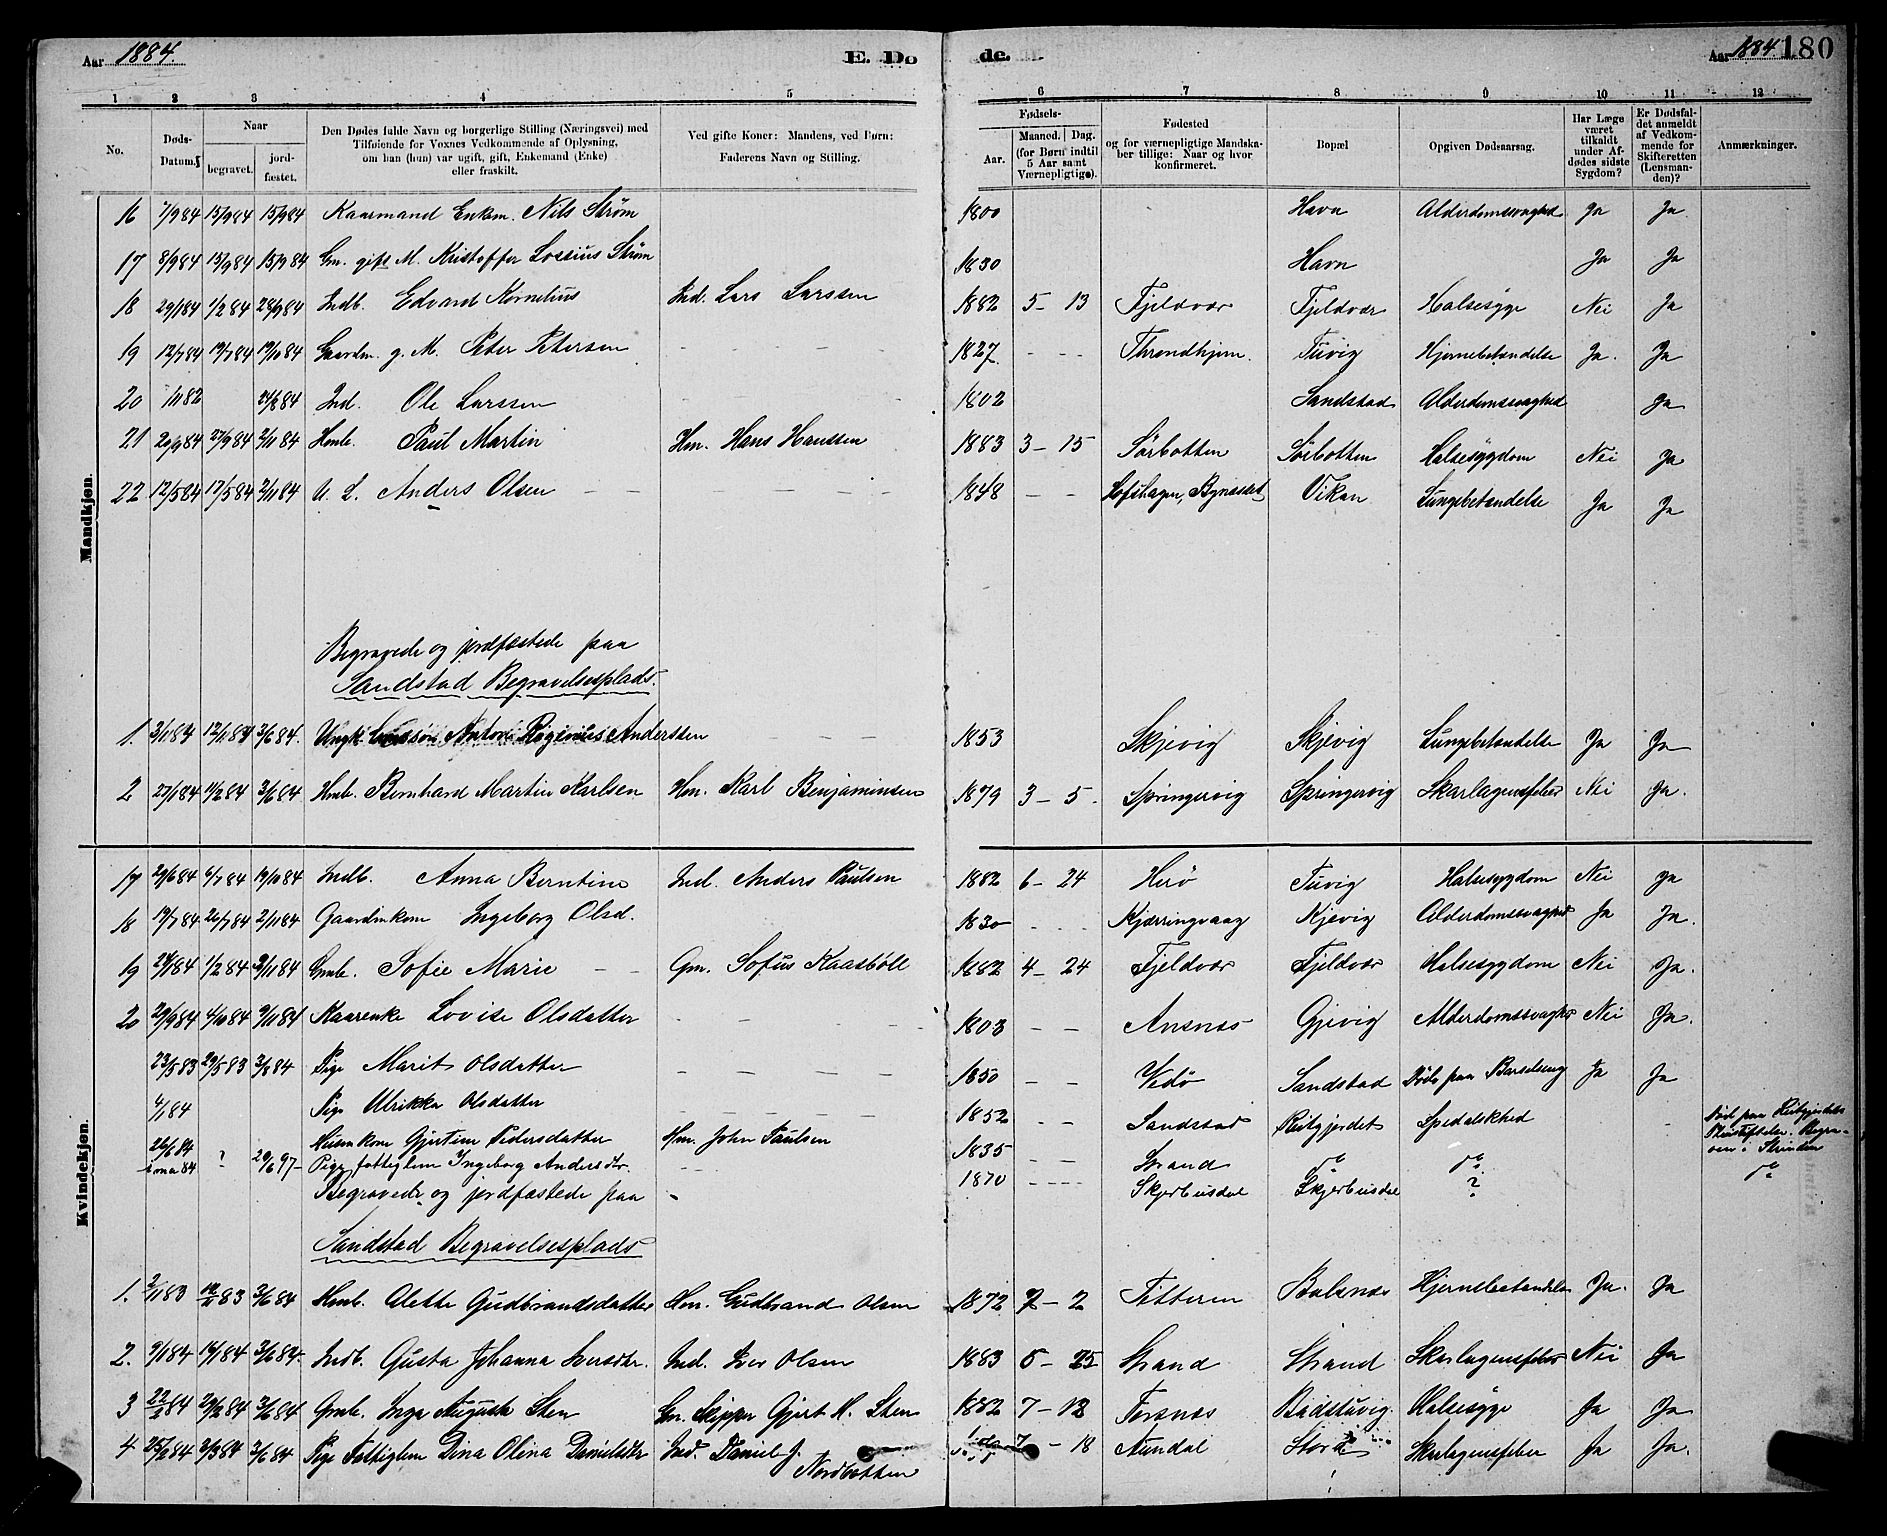 Aar 1884. E. Dø de. Aar 1884. 180
1 2 3 4 5 6 7 8 9 10 11 12
No. Døds-Datum. Naar begravet. jordfæstet. Den Dødes fulde Navn og borgerlige Stilling (Næringsvei) med Tilføiende for Voxnes Vedkommende af Oplysning, om han (hun) var ugift, gift, Enkemand (Enke) eller fraskilt. Ved gifte Koner: Mandens, ved Børn: Faderens Navn og Stilling. Fødsels- Aar. Maaned. Dag. (for Børn indtil 5 Aar samt Værnepligtige). Fødested og for værnepligtige Mandskaber tillige: Naar og hvor konfirmeret. Bopæl Opgiven Dødsaarsag. Har Læge været tilkaldt under Afdødes sidste Sygdom? Er Dødsfaldet anmeldt af Vedkommende for Skifteretten (Lensmanden)? Anmærkninger.
Mandkjøn.
16 7/9 84 15/9 84 15/9 84 Kaarmand Enkem. Nils Strøm 1800 Havn Alderdomssvaghed Ja Ja
17 8/9 84 15/9 84 15/9 84 Gm. gift M. Kristoffer Lossius Strøm 1830 Havn Ja Ja
18 29/1 84 1/2 84 28/9 84 Indb. Edvard Kornelius Ind. Lars Larssen 1882 5 - 13 Fjeldvær Fjeldvær Halsesyge Nei Ja
19 12/7 84 19/7 84 19/10 84 Gaardm. g. M. Peter Petersen 1827 Throndhjem Tuvig Hjernebetændelse Ja. Ja
20 1/11 82 24/8 84 Ind. Ole Larssen 1802 Sandstad Alderdomssvaghed Ja
21 20/9 84 27/9 84 2/11 84 Hmb. Paul Martin Hm. Hans Hanssen 1883 3 - 15 Sörbotten Sörbotten Halsesygdom Nei Ja
22 12/5 84 17/5 84 2/11 84 U. L. Anders Olsen 1848 Lofshagen, Bynesset Vikan Lungebetændelse Ja Ja
Begravede og jordfæstede paa
Sandstad Begravelsesplads.
1. 3/1 84 12/1 84 3/6 84. Ungk. Anton Regimius Anderssen 1853 Skjevig Skjevig Lungebetændelse Ja Ja
2 27/1 84 11/2 84 3/6 84 Hmb. Bernhard Martin Karlsen Hm. Karl Benjaminsen 1879 3 - 5 Springervig Springervig Skarlagensfeber Nei Ja.
Kvindekjøn.
17 29/6 84 6/7 84 19/10 84 Indb. Anna Berntine Ind. Anders Paulsen 1882 6 - 24 Herö Tuvig Halsesygdom Nei Ja
18 19/7 84 26/7 84 2/11 84 Gaardmkone Ingeborg Olsd. 1830 Kjærringvaag Kjevig Alderdomssvaghed Ja Ja.
19 24/1 84 1/2 84 9/11 84 Gmb. Sofie Marie Gm. Sofus Kaasböll 1882 4 - 24 Fjeldvær Fjeldvær Halsesygdom Nei Ja.
20 29/9 84 4/10 84 9/11 84 Kaarenke Lovise Olsdatter 1803 Ansnes Gjevig Alderdomssvaghed Nei Ja.
23/5 83 29/5 83 3/8 84 Pige Marit Olsdatter 1850 Vedö Sandstad Död paa Barselseng Ja Ja
4/1 84 Pige Ulrikke Olsdatter 1852 Sandstad Reitgjerdet Spedalskhed Död paa Reitgjerdets
26/6 84 Husmkone Gjertine Pedersdatter Hm. John Paulsen 1835 Strand do do Begravet i Strinden
i mai 84 ? 20/6 97 Pige, fattiglem Ingeborg Andersdtr. 1870 Skjerbusdal Skjerbusdal ? do
Begravede og jordfæstede paa
Sandstad Begravelsesplads
1. 2/11 83 10/11 83 3/6 84 Hmb. Alette Gudbrandsdatter Hm. Gudbrand Olsen 1872 7 - 2 Titteren Balsnes Hjernebetændelse Ja. Ja
2. 9/1 84 16/1 84 3/6 84. Indb. Gusta Johanna Iversdtr. Ind. Iver Olsen 1883 5 - 25 Strand Strand Skarlagensfeber Nei Ja
3 22/2 84 29/2 84 3/6 84 Gmb. Inga Augusta Sten Gm. Skipper Gjert M. Sten 1882 7 - 12 Forsnes Badstuvig Halsesyge Ja Ja
4 25/2 84 3/3 84 3/6 84 Pige Fattiglem Dina Olina Danielsdtr Ind. Daniel J. Nordbotten 7 - 18 Aundal Skarlagensfeber Ja Ja.